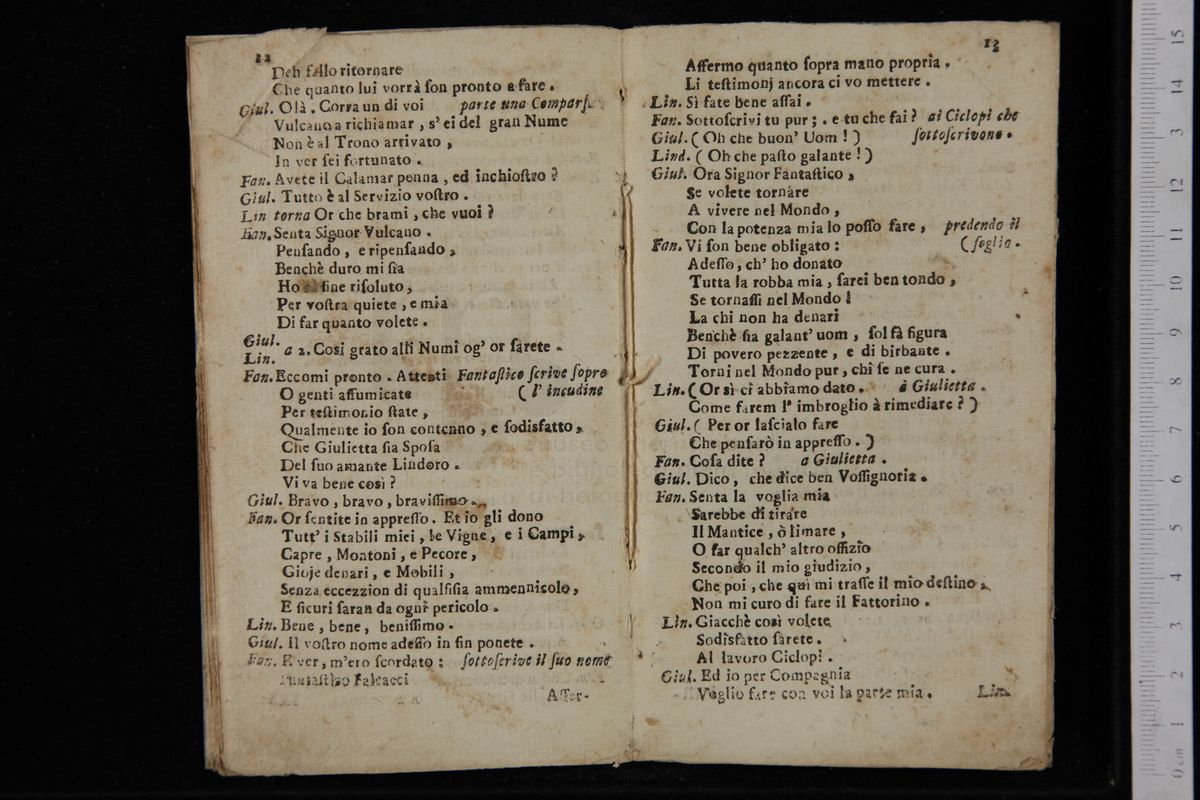 12
Deh fallo ritornare
Che quanto lui vorrà ſon pronto a fare.
Giul. Olà. Corra un di voi parte una Comparſ.
Vulcano a richiamar, s' ei del gran Nume
Non è al Trono arrivato,
In ver ſei fortunato.
Fan. Avete il Calamar penna, ed inchioſtro?
Giul. Tutto è al Servizio voſtro.
Lin torna Or che brami, che vuoi?
Fan. Senta Signor Vulcano.
Penſando, e ripenſando,
Benchè duro mi ſia
Ho al fine riſoluto,
Per voſtra quiete, e mia
Di far quanto volete.
Giul.
Lin. a 2. Cosi grato alli Numi og' or ſarete.
Fan. Eccomi pronto. Attenti Fantaſtico ſcrive ſopre
O genti affumicate ( l' incudine
Per teſtimonio ſtate,
Qualmente io ſon contenno, e ſodisfatto,
Che Giulietta ſia Spoſa
Del ſuo amante Lindoro.
Vi va bene così?
Giul. Bravo, bravo, braviſſimo.
Fan. Or ſentite in appreſſo. Et io gli dono
Tutt' i Stabili miei, le Vigne, e i Campi,
Capre, Montoni, e Pecore,
Gioje denari, e Mobili,
Senza eccezzion di qualſiſia ammennicolo,
E ſicuri ſaran da ogni pericolo.
Lin. Bene, bene, beniſſimo.
Giul. Il voſtro nome adeſſo in fin ponete.
Fan. E ver, m'ero ſcordato: ſottoſcrive il ſuo nome
Fantaſtico
Affer-
13
Affermo quanto ſopra mano propria.
Li teſtimonj ancora ci vo mettere.
Lin. Sì fate bene aſſai.
Fan. Sottoſcrivi tu pur;. e tu che fai? ai Ciclopi che
Giul. ( Oh che buon' Uom! ) ſottoſcrivono.
Lind. ( Oh che paſto galante! )
Giul. Ora Signor Fantaſtico,
Se volete tornare
A vivere nel Mondo,
Con la potenza mia lo poſſo fare, predendo il
Fan. Vi ſon bene obligato: ( foglio.
Adeſſo, ch' ho donato
Tutta la robba mia, ſarei ben tondo,
Se tornaſſi nel Mondo!
La chi non ha denari
Benchè ſia galant' uom, ſol fà figura
Di povero pezzente, e di birbante.
Torni nel Mondo pur, chi ſe ne cura.
Lin. ( Or sì ci abbiamo dato. à Giulietta.
Come farem l' imbroglio à rimediare? )
Giul. ( Per or laſcialo fare
Che penſarò in appreſſo. )
Fan. Coſa dite? a Giulietta.
Giul. Dico, che dice ben Voſſignoria.
Fan. Senta la voglia mia
Sarebbe di tirare
Il Mantice, ò limare,
O far qualch' altro offizio
Secondo il mio giudizio,
Che poi, che quì mi traſſe il mio deſtino,
Non mi curo di fare il Fattorino.
Lin. Giacchè così volete
Sodisfatto ſarete.
Al lavoro Ciclopi.
Giul. Ed io per Compagnia
Voglio fare con voi la parte mia. Lin.